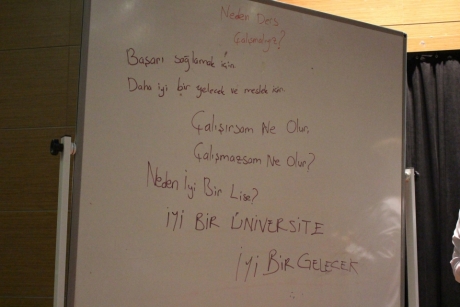 Neden Ders
Çalışmalıyız?
Başarı sağlamak için
Daha iyi bir gelecek ve meslek için.
Çalışırsam Ne Olur,
Çalışmazsam Ne Olur?
Neden İyi Bir Lise?
İYİ BİR ÜNİVERSİTE
İYİ BİR GELECEK